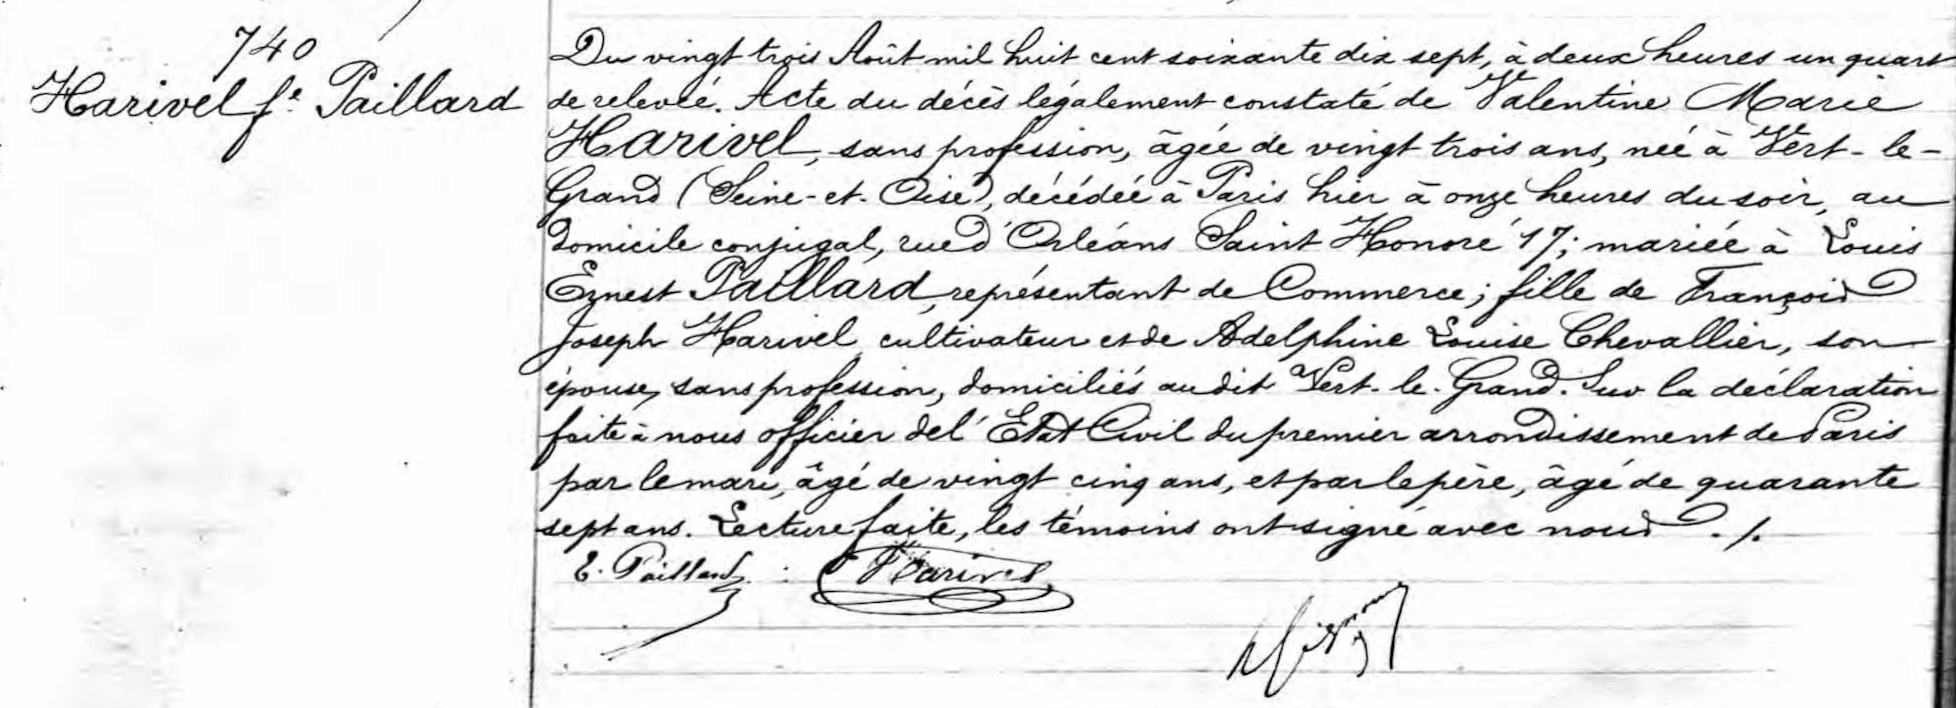 740
Harivel fe Paillard
Du vingt trois Août mil huit cent soixante dix sept, à deux heures un quart
de relevée. Acte du décès légalement constaté de Valentine Marie
Harivel, sans profession, âgée de vingt trois ans, née à Vert-le-
Grand (Seine-et-Oise), décédée à Paris hier à onze heures du soir, au
domicile conjugal, rue d'Orléans Saint Honoré 17; mariée à Louis
Ernest Paillard, représentant de Commerce; fille de François
Joseph Harivel cultivateur et de Adelphine Louise Chevallier, son
épouse, sans profession, domiciliés audit Vert-le-Grand. Sur la déclaration
faite à nous officier de l'Etat Civil du premier arrondissement de Paris
par le mari, âgé de vingt cinq ans, et par le père, âgé de quarante
sept ans. Lecture faite, les témoins ont signé avec nous ./.
E. Paillard : Harivel